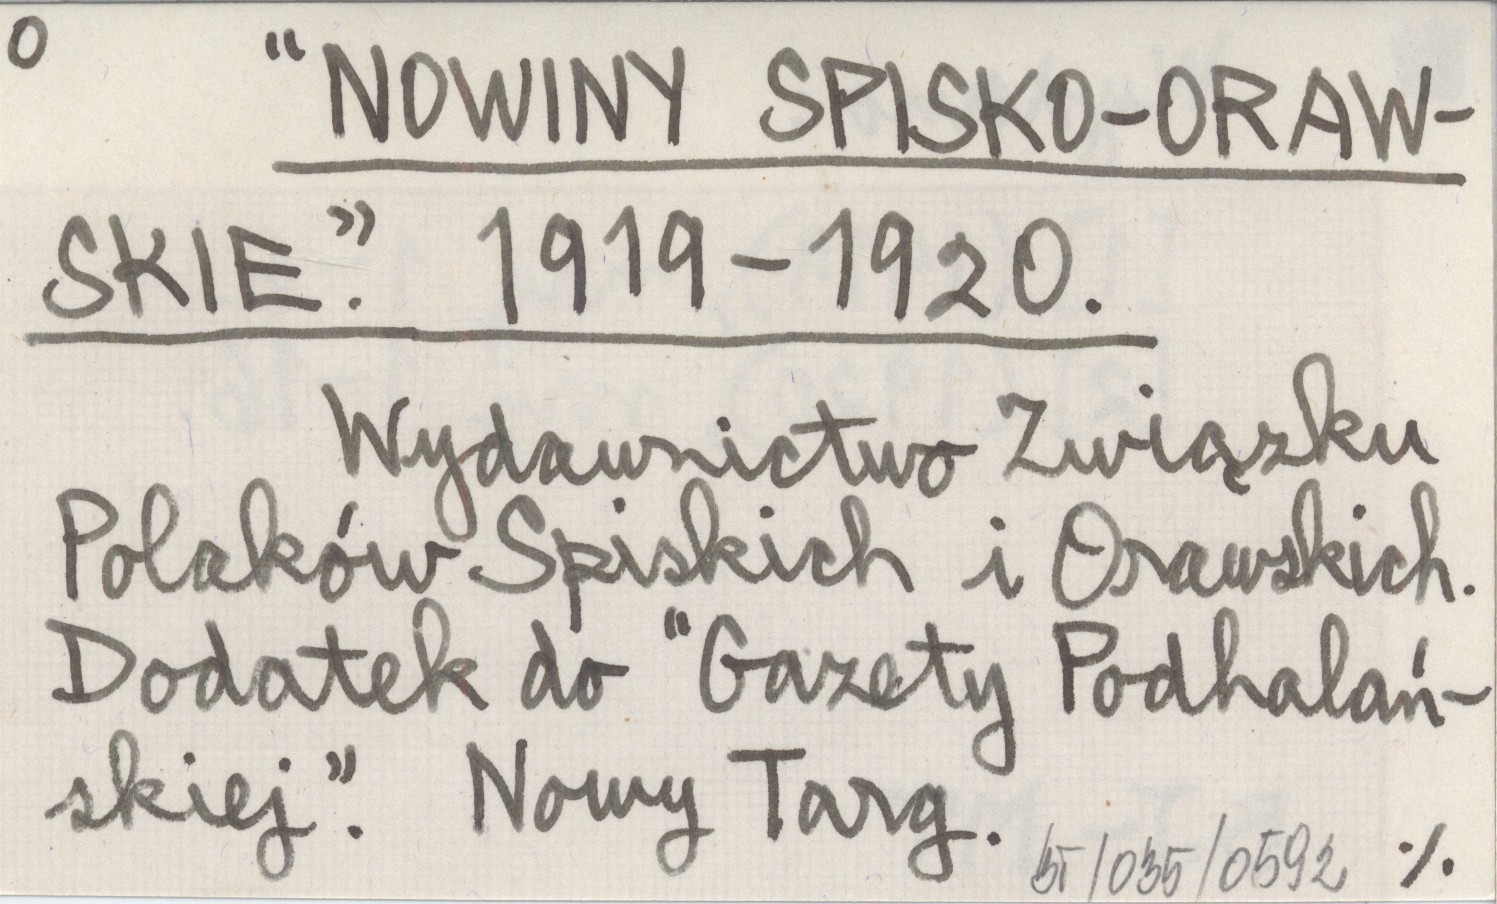 O
“NOWINY SPISKO-ORAW-
SKIE.” 1919-1920.
Wydawnictwo Związku
Polaków Spiskich i Orawskich.
Dodatek do “Gazety Podhalań-
skiej”. Nowy Targ.
/035/0592 ·/.